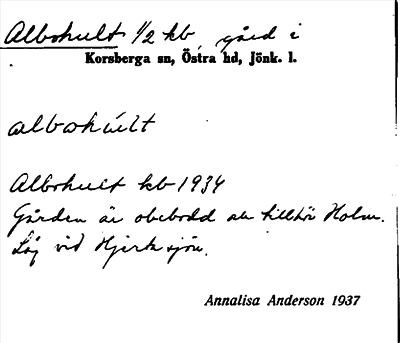 Albohult 1/2 kb, gård i
Korsberga sn, Östra hd, Jönk. l.
albohúlt
Albohult kb 1934
Gården är obebodd och tillhör Holm.
Låg vid Hjertasjön.
Annalisa Anderson 1937